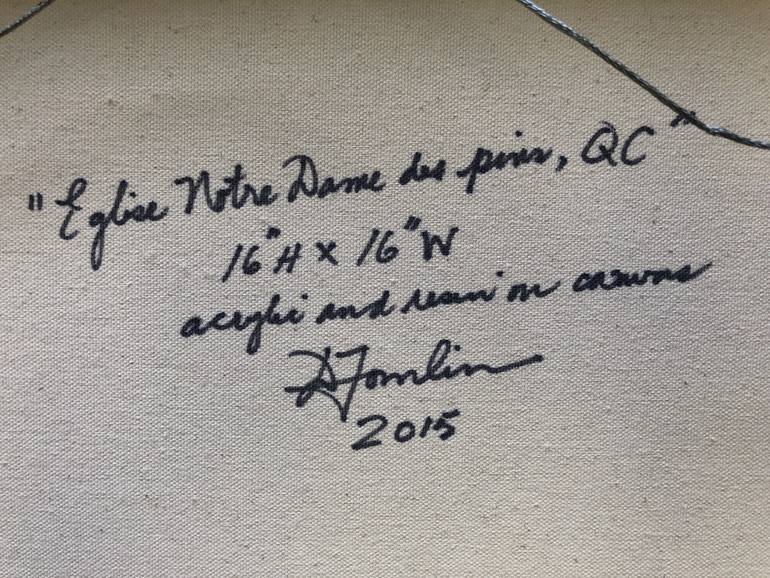 "Eglise Notre Dame des pins, QC"
16"H x 16"W
acrylic and resin on canvas
D Tomlin
2015